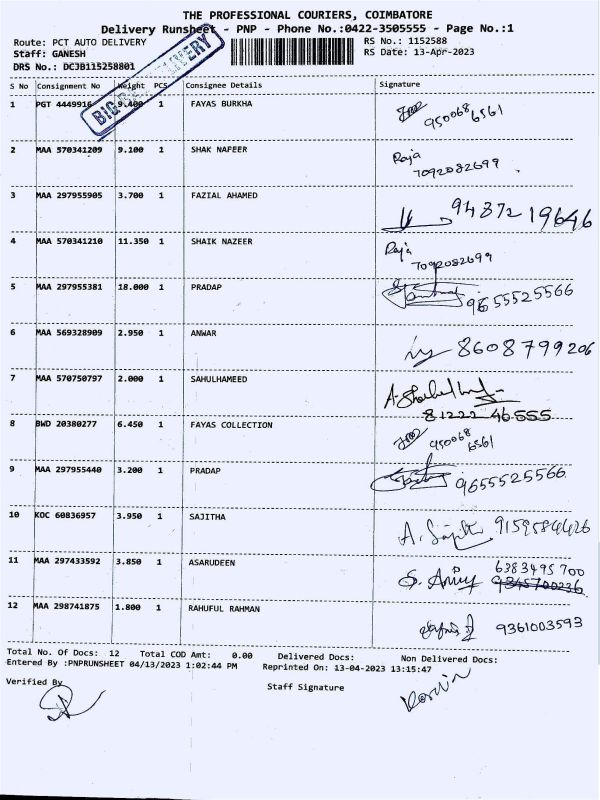 THE PROFESSIONAL COURIERS, COIMBATORE
Delivery Runsheet - PNP - Phone No.:0422-3505555 - Page No.:1
Route: PCT AUTO DELIVERY RS No.: 1152588
Staff: GANESH RS Date: 13-Apr-2023
DRS No.: DCJB115258801
BIG DELIVERY
S No Consignment No Weight PCS Consignee Details Signature
1 PGT 4449916 9.400 1 FAYAS BURKHA 950068 6561
2 MAA 570341209 9.100 1 SHAK NAFEER Raja 7092082699
3 MAA 297955905 3.700 1 FAZIAL AHAMED 9487219646
4 MAA 570341210 11.350 1 SHAIK NAZEER Raja 7092082699
5 MAA 297955381 18.000 1 PRADAP 9655525566
6 MAA 569328909 2.950 1 ANWAR 8608799206
7 MAA 570750797 2.000 1 SAHULHAMEED 81222 46555
8 BWD 20380277 6.450 1 FAYAS COLLECTION 950068 6561
9 MAA 297955440 3.200 1 PRADAP 9655525566
10 KOC 60836957 3.950 1 SAJITHA A. Sajith 9159584426
11 MAA 297433592 3.850 1 ASARUDEEN 6383495700
12 MAA 298741875 1.800 1 RAHUFUL RAHMAN 9361003593
Total No. Of Docs: 12 Total COD Amt: 0.00 Delivered Docs: Non Delivered Docs:
Entered By :PNPRUNSHEET 04/13/2023 1:02:44 PM Reprinted On: 13-04-2023 13:15:47
Verified By Staff Signature